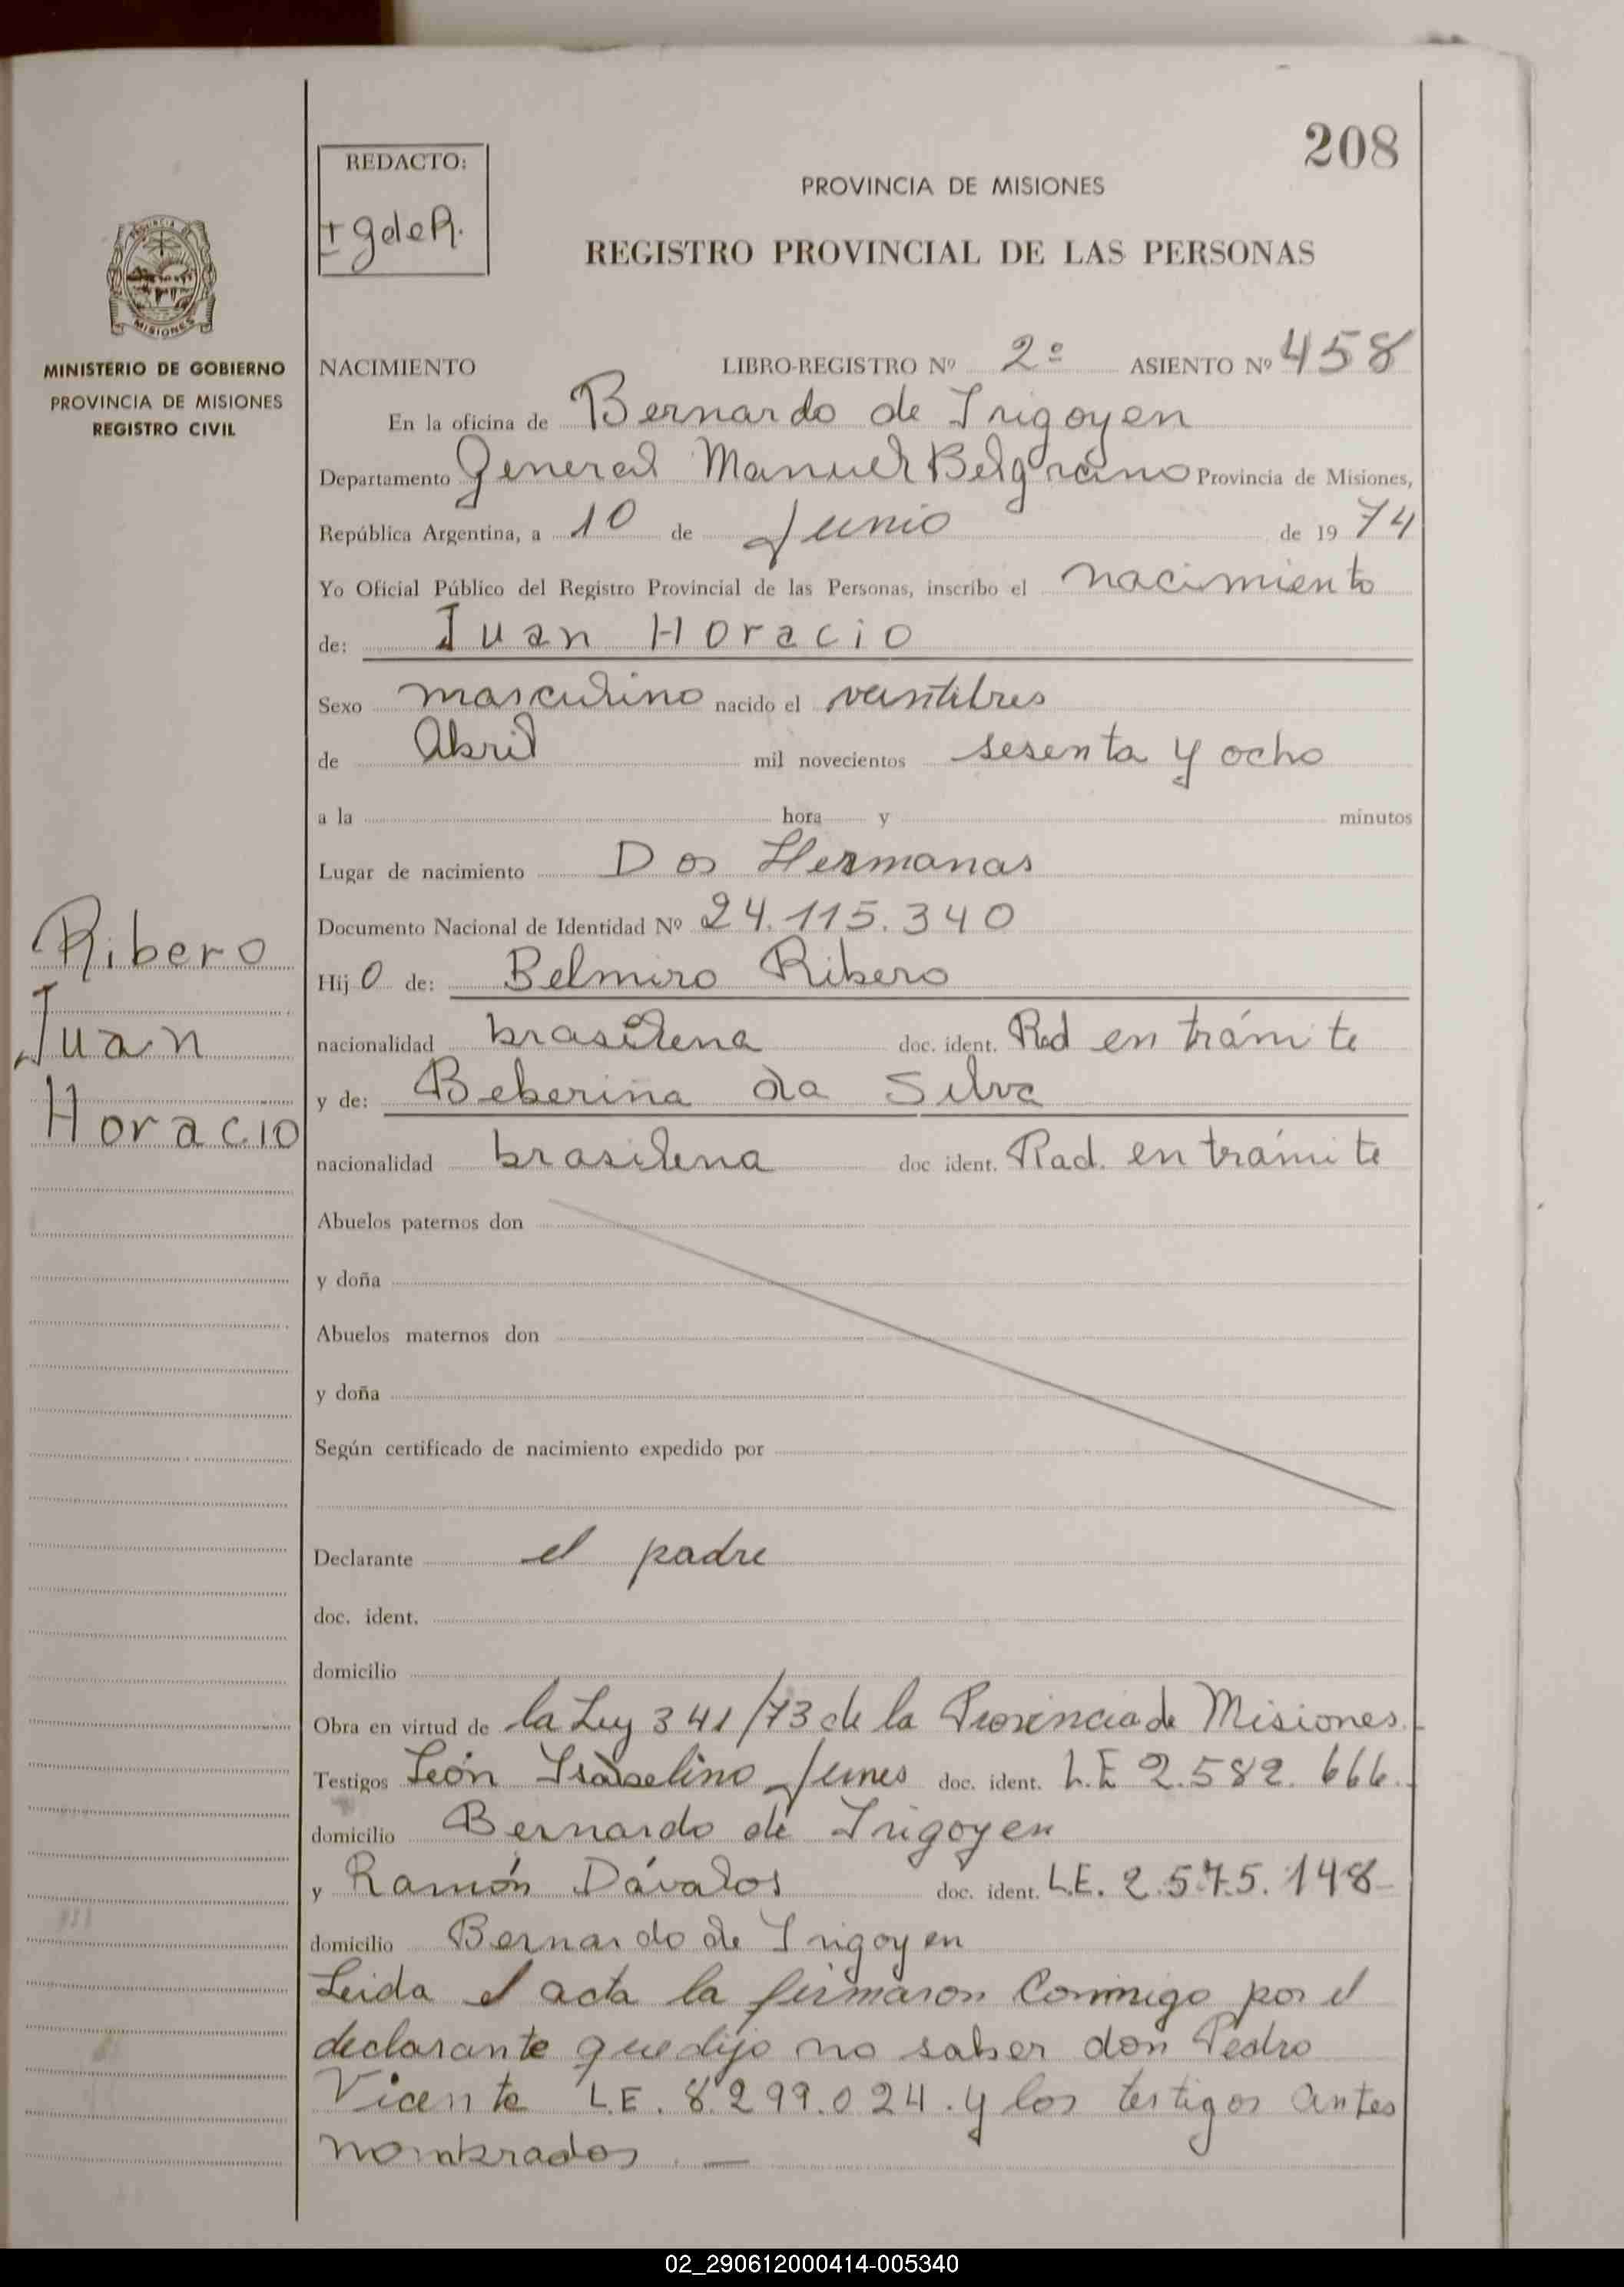 208
REDACTO:
IgdeR.
PROVINCIA DE MISIONES
REGISTRO PROVINCIAL DE LAS PERSONAS
MISIONES
MINISTERIO DE GOBIERNO
PROVINCIA DE MISIONES
REGISTRO CIVIL
NACIMIENTO LIBRO-REGISTRO Nº 2º ASIENTO Nº 458
En la oficina de Bernardo de Irigoyen
Departamento General Manuel Belgrano Provincia de Misiones,
República Argentina, a 10 de Junio de 19 74
Yo Oficial Público del Registro Provincial de las Personas, inscribo el nacimiento
de: Juan Horacio
Sexo masculino nacido el veintitres
de Abril mil novecientos sesenta y ocho
a la hora y minutos
Lugar de nacimiento Dos Hermanas
Documento Nacional de Identidad Nº 24.115.340
Ribero
Juan
Horacio
Hij o de: Belmiro Ribero
nacionalidad brasilena doc. ident. Rad en trámite
y de: Beberina da Silva
nacionalidad brasilena doc ident. Rad. en trámite
Abuelos paternos don
y doña
Abuelos maternos don
y doña
Según certificado de nacimiento expedido por
Declarante el padre
doc. ident.
domicilio
Obra en virtud de la Ley 341/73 de la Provincia de Misiones
Testigos León Isabelino doc. ident. L.E 2.582.666.
domicilio Bernardo de Irigoyen
y Ramón Dávalos doc. ident. L.E. 2.575.148
domicilio Bernardo de Irigoyen
Leida el acta la firmaron Conmigo por el
declarante que dijo no saber don Pedro
Vicente L.E. 8.299.024. y los testigos antes
nombrados. —
02_290612000414-005340